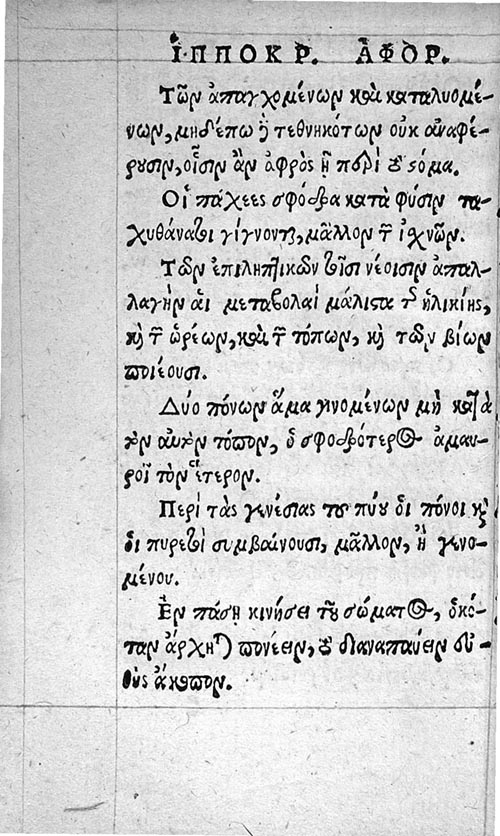 ἹΠΠΟΚΡ. ἈΦΟΡ.
Τῶν ἀπαγχομένων καὶ καταλυομέ-
νων, μηδέπω ἢ τεθνηκότων οὐκ ἀναφέ-
ρουσιν, οἷσιν ἂν ἀφρὸς ᾖ περὶ τὸ στόμα.
Οἱ πάχεες σφόδρα κατὰ φύσιν τα-
χυθάνατοι γίγνονται, μᾶλλον τῶν ἰσχνῶν.
Τῶν ἐπιληπτικῶν τοῖσι νέοισιν ἀπαλ-
λαγὴν αἱ μεταβολαὶ μάλιστα τῆς ἡλικίης,
καὶ τῶν ὡρέων, καὶ τῶν τόπων, καὶ τῶν βίων
ποιέουσι.
Δύο πόνων ἅμα γινομένων μὴ κατὰ
τὸν αὐτὸν τόπον, ὁ σφοδρότερος ἀμαυ-
ροῖ τὸν ἕτερον.
Περὶ τὰς γενέσιας τοῦ πύου οἱ πόνοι καὶ
οἱ πυρετοὶ συμβαίνουσι, μᾶλλον, ἢ γενο-
μένου.
Ἐν πάσῃ κινήσει τοῦ σώματος, ὁκό-
ταν ἄρχηται πονέειν, τὸ διαναπαύειν εὐ-
θὺς ἄκοπον.